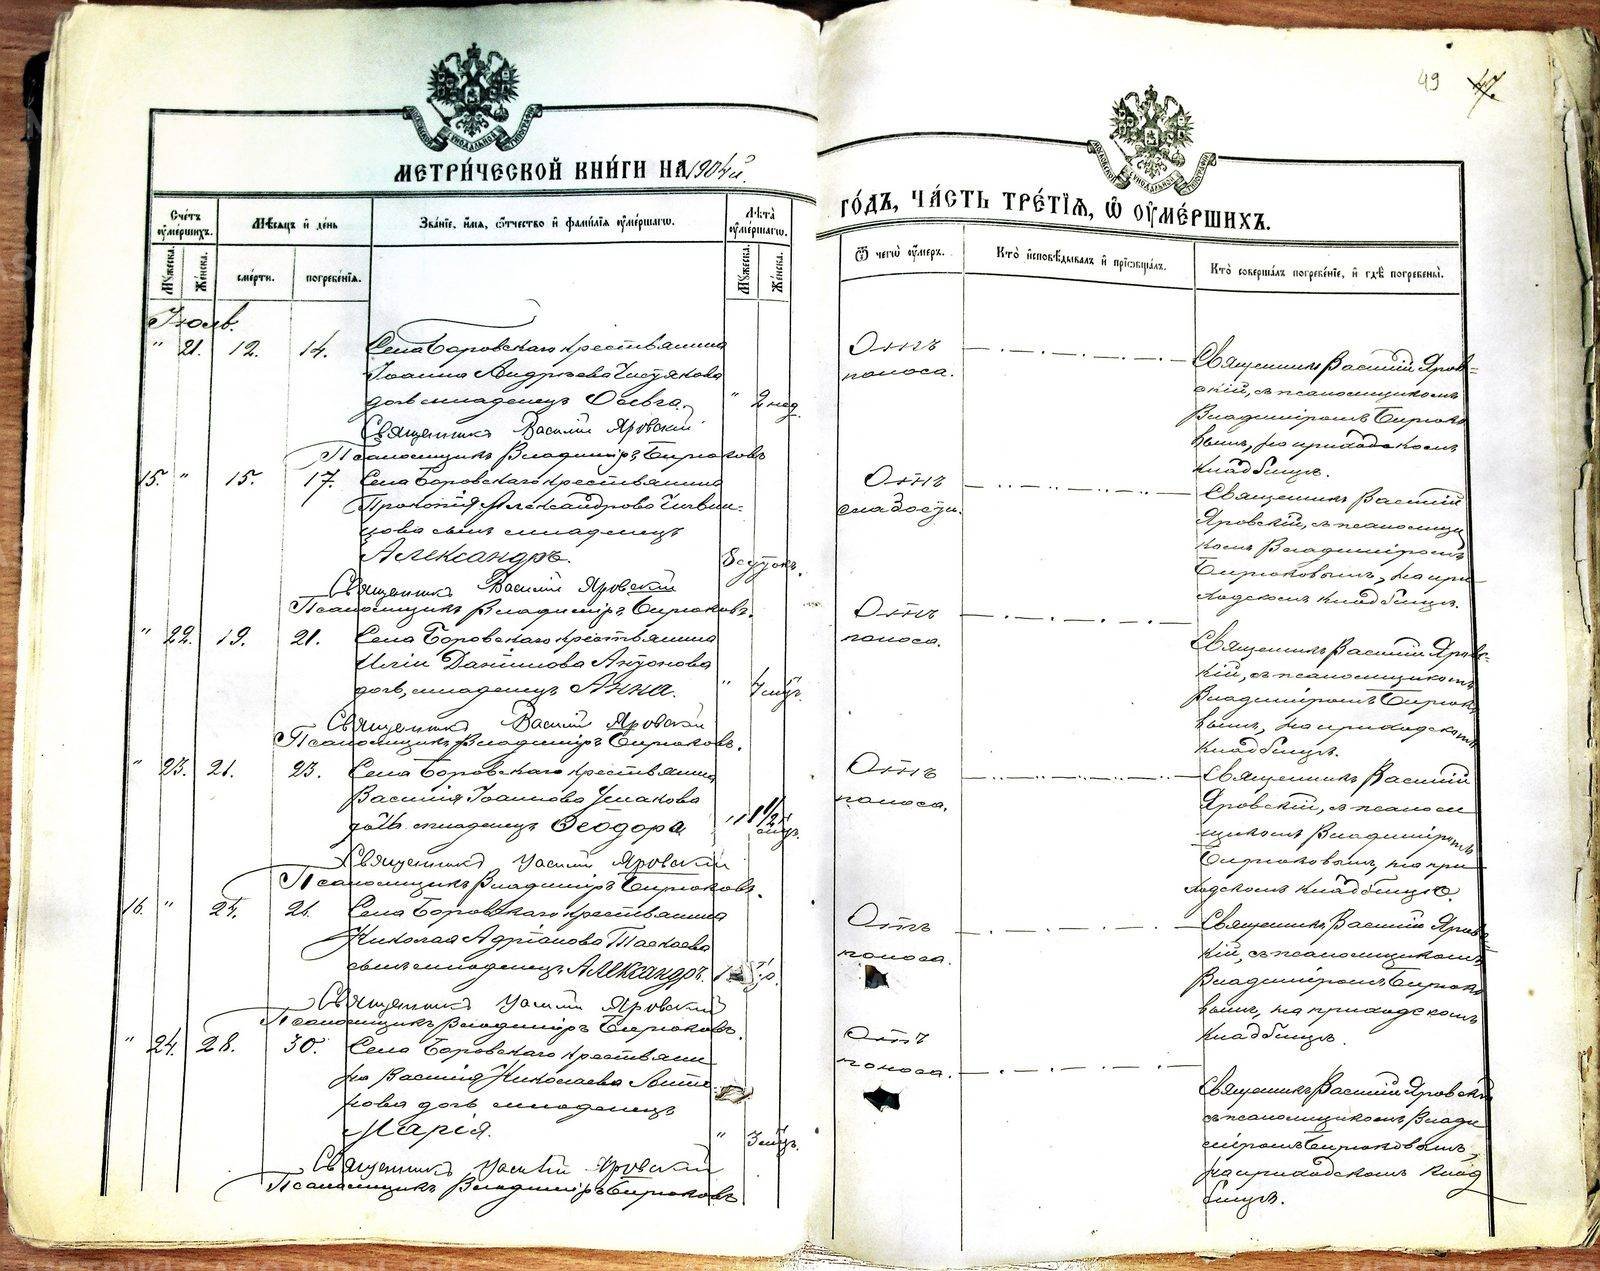 49 47.
МЕТРИЧЕСКОЙ КНИГИ НА 1904й.
ГОДЪ, ЧАСТЬ ТРЕТІЯ, Ѡ ОУМЕРШИХЪ.
Счетъ оумершихъ.
Мѣсяцъ и день
Званіе, имя, отчество и фамилія оумершагω.
Лѣта оумершагω.
Ѿ чегω оумеръ.
Кто исповѣдывалъ и пріобщалъ.
Кто совершалъ погребеніе, и гдѣ погребены.
Мужеска.
Женска.
смерти.
погребенія.
Мужеска.
Женска.
Іюль.
" 21. 12. 14. Села Боровскаго крестьянина
Іоанна Андреева
дочь младенецъ Ольга. " 2 нед.
Священникъ Василій Яровскій
Псаломщикъ Владиміръ Бирюковъ
Отъ
поноса.
Священникъ Василій Яров-
скій, съ псаломщикомъ
Владиміромъ Бирюко
вымъ, на приходскомъ
кладбищѣ.
15. " 15. 17. Села Боровскаго крестьянина
Прокопія Александрова Чигвин-
цова сынъ младенецъ
Александръ. 8 сутокъ.
Священникъ Василій Яровскій
Псаломщикъ Владиміръ Бирюковъ.
Отъ
слабости.
Священникъ Василій
Яровскій, съ псаломщи
комъ Владиміромъ
Бирюковымъ, на при-
ходскомъ кладбищѣ.
" 22. 19. 21. Села Боровскаго крестьянина
Иліи Даніилова Антонова
дочь, младенецъ Анна. " 4 мѣц.
Священникъ Василій Яровскій
Псаломщикъ Владиміръ Бирюковъ.
Отъ
поноса.
Священникъ Василій Яровс-
кій, съ псаломщикомъ
Владиміромъ Бирюко
вымъ, на приходскомъ
кладбищѣ.
" 23. 21. 23. Села Боровскаго крестьянина
Василія Іоаннова Ушакова
дочь младенецъ Ѳеодора " 1 1/2 мѣц.
Священникъ Василій Яровскій
Псаломщикъ Владиміръ Бирюковъ.
Отъ
поноса.
Священникъ Василій
Яровскій, съ псаломщ
щикомъ Владиміромъ
Бирюковымъ, на при
ходскомъ кладбищѣ.
16. " 24. 26. Села Боровскаго крестьянина
Николая Адріанова Таскаева
сынъ младенецъ Александръ. 1
Священникъ Василій Яровскій
Псаломщикъ Владиміръ Бирюковъ.
Отъ
поноса.
Священникъ Василій Яровс-
кій, съ псаломщикомъ
Владиміромъ Бирюко
вымъ, на приходскомъ
кладбищѣ.
" 24. 28. 30. Села Боровскаго крестьяни
на Василія Николаева
дочь младенецъ
Марія. " 3 мѣц.
Священникъ Василій Яровскій
Псаломщикъ Владиміръ Бирюковъ
Отъ
поноса.
Священникъ Василій Яровскій
съ псаломщикомъ Влади
міромъ Бирюковымъ,
на приходскомъ клад
бищѣ.